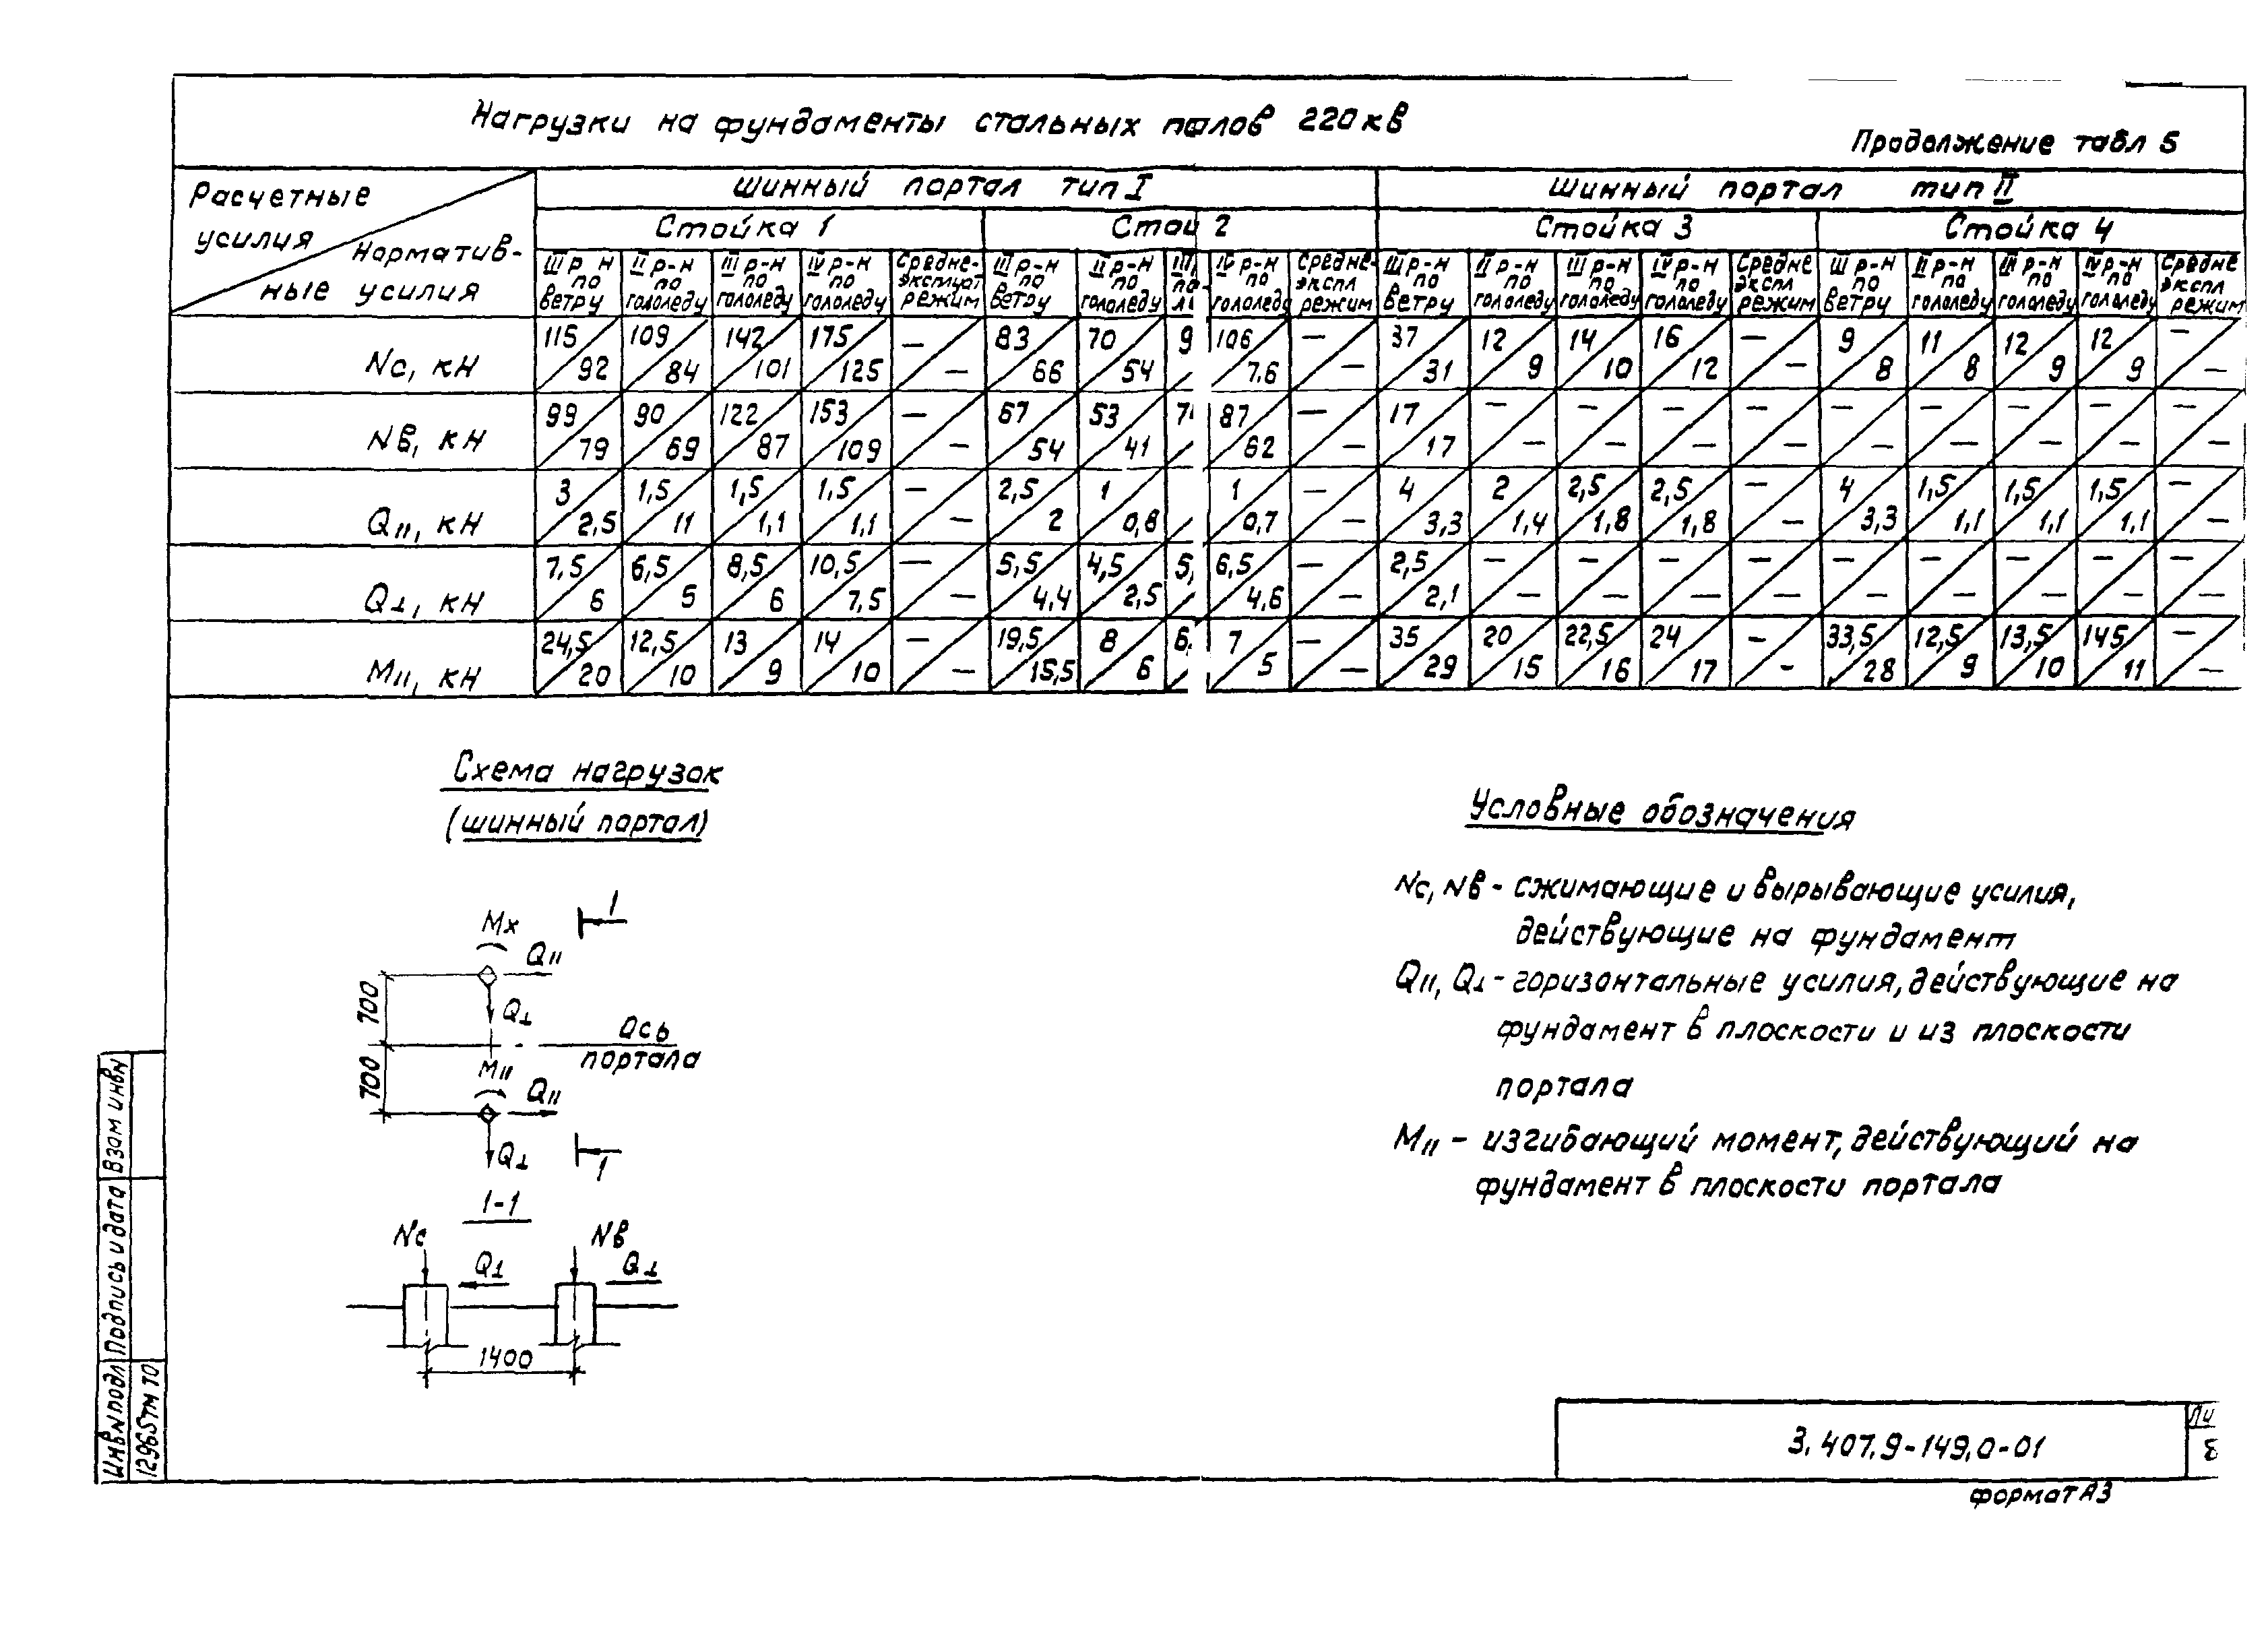 Нагрузки на фундаменты стальных палов 220кв
Продолжение табл 5
Расчетные усилия / Нормативные усилия
Шинный портал тип I | Шинный портал тип II
Стойка 1 | Стой 2 | Стойка 3 | Стойка 4
III р-н по ветру | II р-н по гололеду | III р-н по гололеду | IV р-н по гололеду | Средне-эксплуат режим | III р-н по ветру | II р-н по гололеду | III по л | IV р-н по гололеду | Средне-экспл режим | III р-н по ветру | II р-н по гололеду | III р-н по гололеду | IV р-н по гололеду | Средне экспл режим | III р-н по ветру | II р-н по гололеду | III р-н по гололеду | IV р-н по гололеду | Средне экспл режим
Nс, кН | 115/92 | 109/84 | 142/101 | 175/125 | —/— | 83/66 | 70/54 | 9 | 106/7.6 | —/— | 37/31 | 12/9 | 14/10 | 16/12 | —/— | 9/8 | 11/8 | 12/9 | 12/9 | —/—
Nв, кН | 99/79 | 90/69 | 122/87 | 153/109 | —/— | 67/54 | 53/41 | 7 | 87/62 | —/— | 17/17 | —/— | —/— | —/— | —/— | —/— | —/— | —/— | —/— | —/—
Q॥, кН | 3/2,5 | 1,5/11 | 1,5/1,1 | 1,5/1,1 | —/— | 2,5/2 | 1/0,8 | | 1/0,7 | —/— | 4/3,3 | 2/1,4 | 2,5/1,8 | 2,5/1,8 | —/— | 4/3,3 | 1,5/1,1 | 1,5/1,1 | 1,5/1,1 | —/—
Q⊥, кН | 7,5/6 | 6,5/5 | 8,5/6 | 10,5/7,5 | —/— | 5,5/4,4 | 4,5/2,5 | 5, | 6,5/4,6 | —/— | 2,5/2,1 | —/— | —/— | —/— | —/— | —/— | —/— | —/— | —/— | —/—
M॥, кН | 24,5/20 | 12,5/10 | 13/9 | 14/10 | —/— | 19,5/15,5 | 8/6 | 6, | 7/5 | —/— | 35/29 | 20/15 | 22,5/16 | 24/17 | -/- | 33,5/28 | 12,5/9 | 13,5/10 | 145/11 | —/—
Схема нагрузок
(шинный портал)
Mx
1
Q॥
700
Q⊥
Ось
портала
M॥
700
Q॥
Q⊥
1
1-1
Nс
Nв
Q⊥
Q⊥
1400
Условные обозначения
Nс, Nв - сжимающие и вырывающие усилия,
действующие на фундамент
Q॥, Q⊥ - горизонтальные усилия, действующие на
фундамент в плоскости и из плоскости
портала
M॥ - изгибающий момент, действующий на
фундамент в плоскости портала
Взам инвN
Подпись и дата
ИнвNподл
12965тм Т0
3.407.9-149.0-01
Ли
8
формат А3